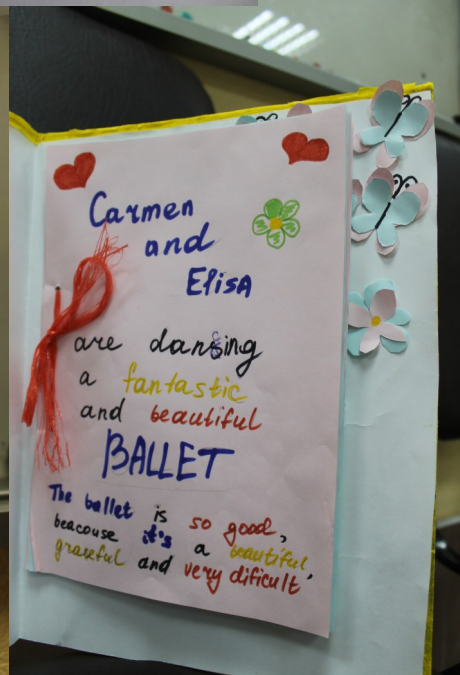 Carmen
and
Elisa
are dancing
a fantastic
and beautiful
BALLET
The ballet is so good,
beacouse it's a beautiful,
graseful and very dificult.